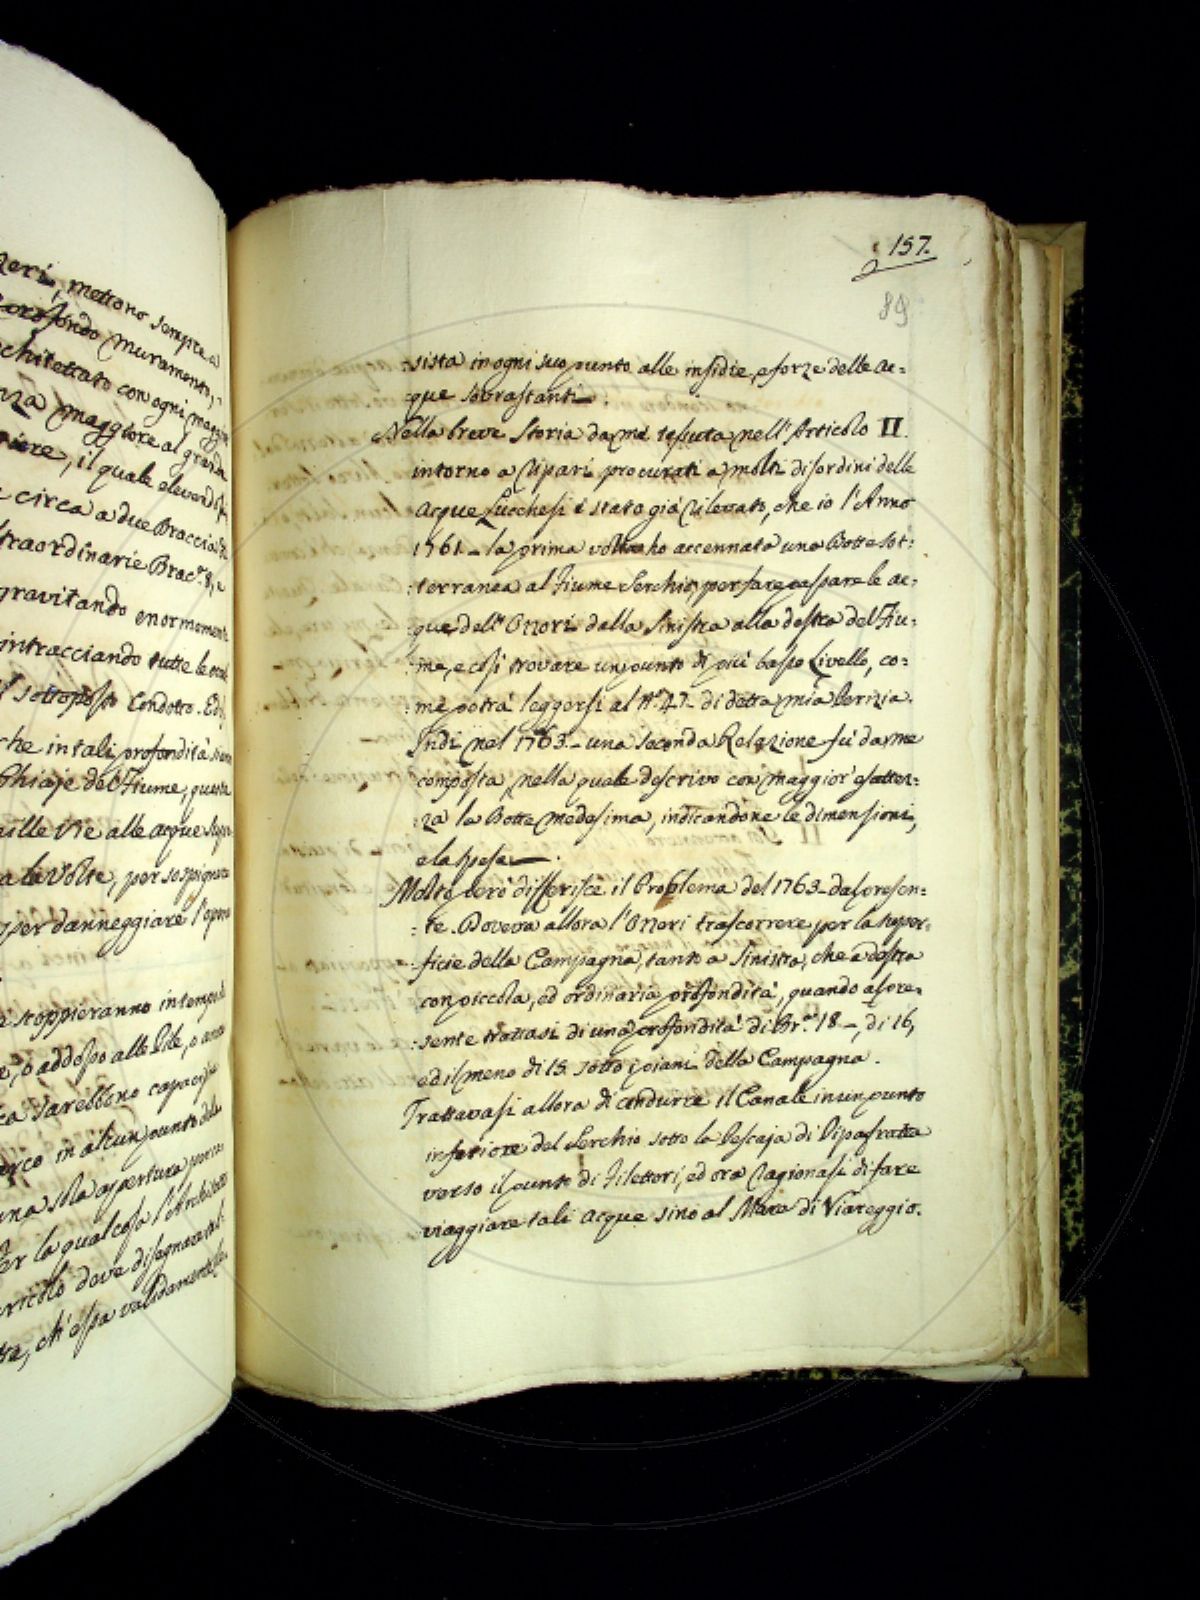 zeri, mettono sempre a
profondo muramento,
architettato con ogni maggior
maggiore al grande
il quale elevandosi
circa a due Braccia
straordinarie Brac.ª 8, e
gravitando enormemente
intracciando tutte le
sottoposto Condotto. Ed
che in tali profondità
Ghiaje del Fiume, queste
mille vie alle acque
a la Volte, per sospignere
per danneggiare l'opera
scoppieranno in tempo di
o addosso alle Pile, o
sarebbono capaci
arco in alcun punto della
una sola apertura
Per la qual cosa l'Architetto
deve disegnare
ch'essa validamente
157.
89
:sista in ogni suo punto alle insidie, e forze delle ac:
que sovrastanti.
Nella breve Storia da me tessuta nell'Articolo II.
intorno a Ripari procurati a molti disordini delle
acque Lucchesi è stato già rilevato, che io l'Anno
1761 - la prima volta ho accennata una Botte sot:
:terranea al Fiume Serchio, per fare passare le ac:
:que dell'Ozzori dalla Sinistra alla destra del Fiu:
:me, e così trovare un punto di più basso Livello, co:
:me potrà leggersi al N.º 47 - di detta mia Perizia.
Indi nel 1763 - una seconda Relazione fù da me
composta, nella quale descrivo con maggior' esattez:
:za la Botte medesima, indicandone le dimensioni,
e la spesa.
Molto però differisce il Problema del 1763 - dal presen:
:te. Doveva allora l'Ozzori trascorrere per la super:
:ficie della Campagna, tanto a Sinistra, che a destra
con piccola, ed ordinaria profondità, quando al pre:
:sente trattasi di una profondità di Br.ª 18 -, di 16,
ed il meno di 15 sotto i piani della Campagna.
Trattavasi allora di condurre il Canale in un punto
inferiore del Serchio sotto la Pescaja di Ripafratta
verso il punto di Filettori, ed ora ragionasi di fare
viaggiare tali acque sino al Mare di Viareggio.